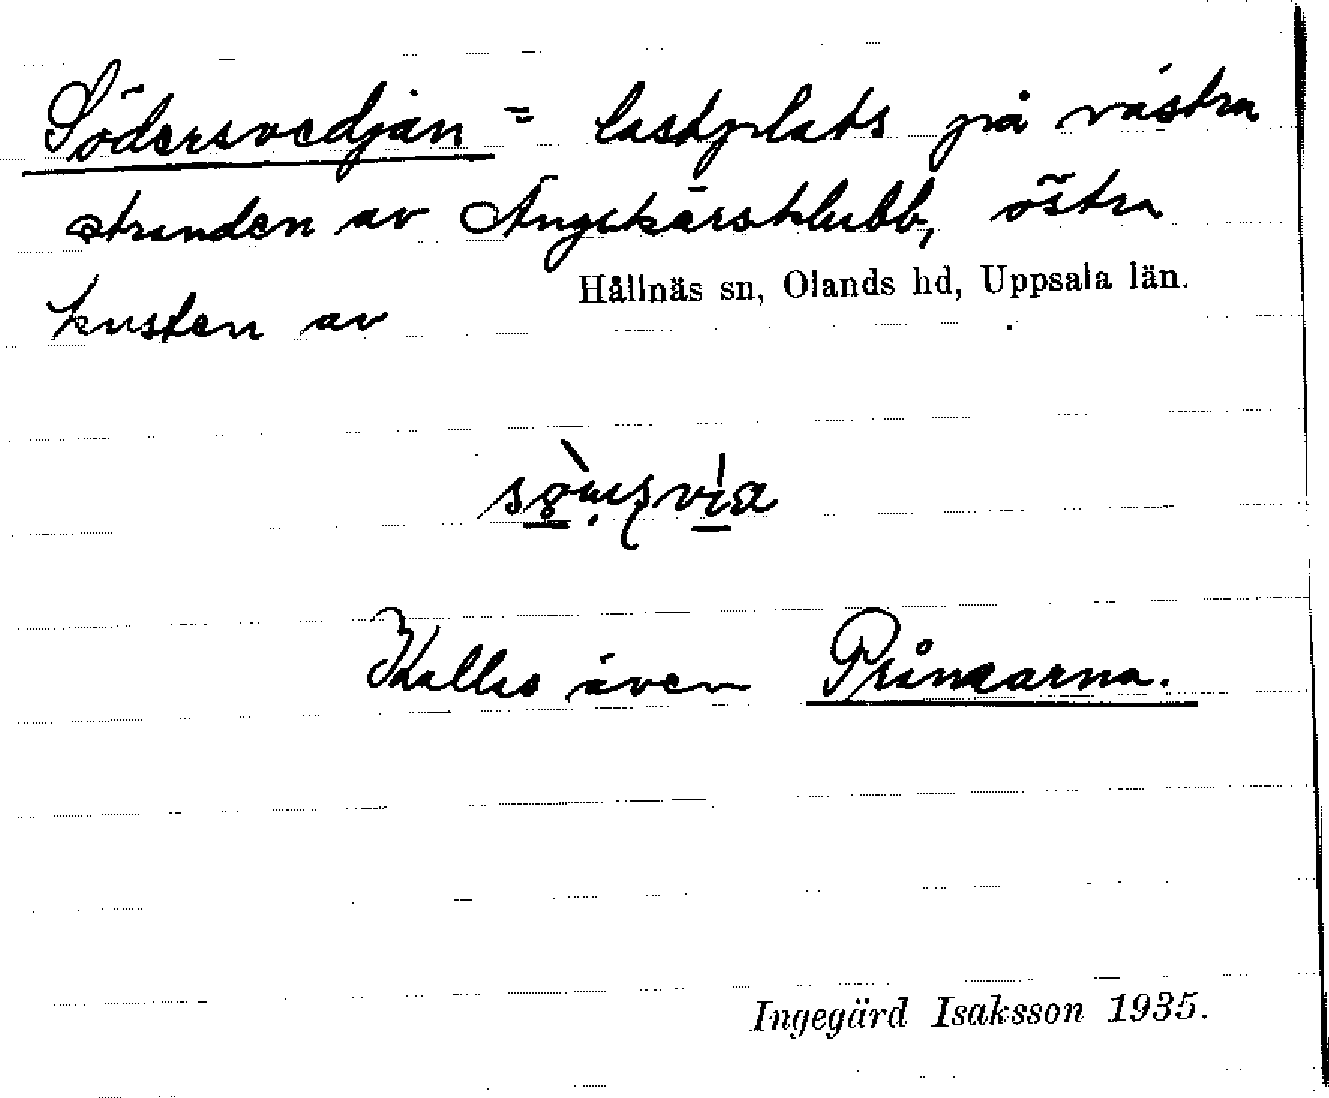 Södersvedjan = lastplats på västra
stranden av Ängskärsklubb, östra
kusten av Hållnäs sn, Olands hd, Uppsala län.
Kallas även
Ingegärd Isaksson 1935.